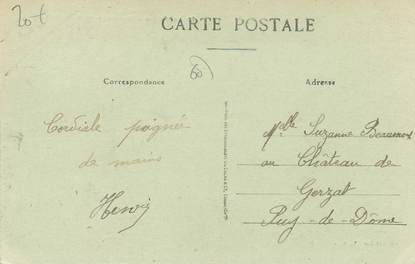 20 t
CARTE POSTALE
60
Correspondance
Adresse
Cordiale poignée
de mains
Henri
Melle Suzanne Beaumont
au Château de
Gerzat
Puy-de-Dôme